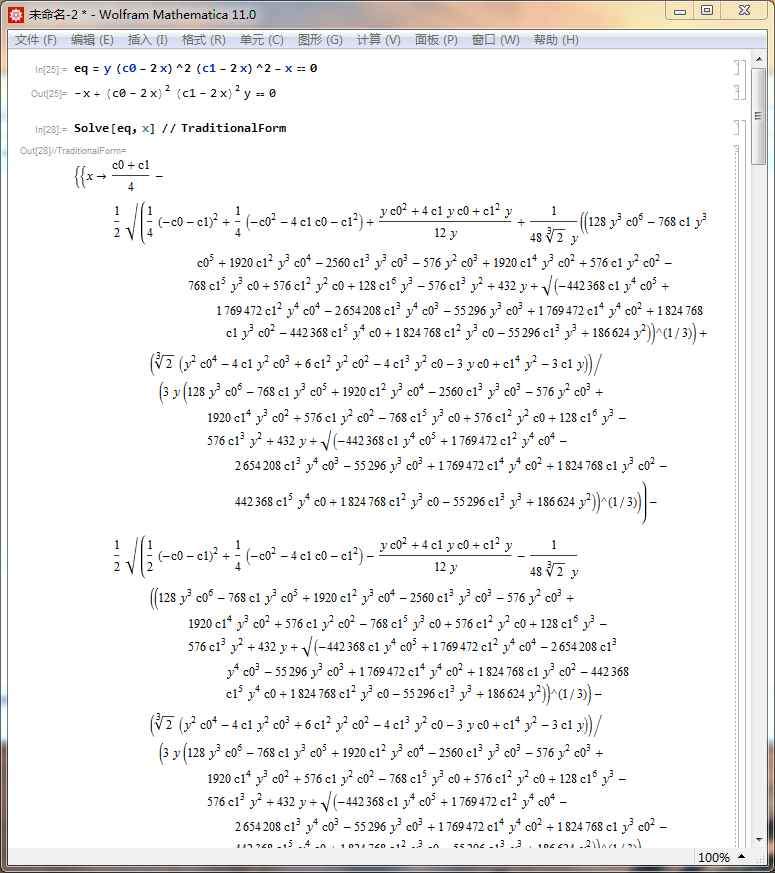 未命名-2 * - Wolfram Mathematica 11.0
文件 (F) 编辑 (E) 插入 (I) 格式 (R) 单元 (C) 图形 (G) 计算 (V) 面板 (P) 窗口 (W) 帮助 (H)
In[25]:= eq = y (c0 - 2 x) ^2 (c1 - 2 x) ^2 - x == 0
Out[25]= -x + (c0 - 2 x)² (c1 - 2 x)² y == 0
In[28]:= Solve[eq, x] // TraditionalForm
Out[28]//TraditionalForm=
{{x → (c0 + c1)/4 -
1/2 √(1/4 (-c0 - c1)² + 1/4 (-c0² - 4 c1 c0 - c1²) + (y c0² + 4 c1 y c0 + c1² y)/(12 y) + 1/(48 ∛2 y) ((128 y³ c0⁶ - 768 c1 y³
c0⁵ + 1920 c1² y³ c0⁴ - 2560 c1³ y³ c0³ - 576 y² c0³ + 1920 c1⁴ y³ c0² + 576 c1 y² c0² -
768 c1⁵ y³ c0 + 576 c1² y² c0 + 128 c1⁶ y³ - 576 c1³ y² + 432 y + √(-442 368 c1 y⁴ c0⁵ +
1 769 472 c1² y⁴ c0⁴ - 2 654 208 c1³ y⁴ c0³ - 55 296 y³ c0³ + 1 769 472 c1⁴ y⁴ c0² + 1 824 768
c1 y³ c0² - 442 368 c1⁵ y⁴ c0 + 1 824 768 c1² y³ c0 - 55 296 c1³ y³ + 186 624 y²))^(1/3)) +
(∛2 (y² c0⁴ - 4 c1 y² c0³ + 6 c1² y² c0² - 4 c1³ y² c0 - 3 y c0 + c1⁴ y² - 3 c1 y))/
(3 y (128 y³ c0⁶ - 768 c1 y³ c0⁵ + 1920 c1² y³ c0⁴ - 2560 c1³ y³ c0³ - 576 y² c0³ +
1920 c1⁴ y³ c0² + 576 c1 y² c0² - 768 c1⁵ y³ c0 + 576 c1² y² c0 + 128 c1⁶ y³ -
576 c1³ y² + 432 y + √(-442 368 c1 y⁴ c0⁵ + 1 769 472 c1² y⁴ c0⁴ -
2 654 208 c1³ y⁴ c0³ - 55 296 y³ c0³ + 1 769 472 c1⁴ y⁴ c0² + 1 824 768 c1 y³ c0² -
442 368 c1⁵ y⁴ c0 + 1 824 768 c1² y³ c0 - 55 296 c1³ y³ + 186 624 y²))^(1/3))) -
1/2 √(1/2 (-c0 - c1)² + 1/4 (-c0² - 4 c1 c0 - c1²) - (y c0² + 4 c1 y c0 + c1² y)/(12 y) - 1/(48 ∛2 y)
((128 y³ c0⁶ - 768 c1 y³ c0⁵ + 1920 c1² y³ c0⁴ - 2560 c1³ y³ c0³ - 576 y² c0³ +
1920 c1⁴ y³ c0² + 576 c1 y² c0² - 768 c1⁵ y³ c0 + 576 c1² y² c0 + 128 c1⁶ y³ -
576 c1³ y² + 432 y + √(-442 368 c1 y⁴ c0⁵ + 1 769 472 c1² y⁴ c0⁴ - 2 654 208 c1³
y⁴ c0³ - 55 296 y³ c0³ + 1 769 472 c1⁴ y⁴ c0² + 1 824 768 c1 y³ c0² - 442 368
c1⁵ y⁴ c0 + 1 824 768 c1² y³ c0 - 55 296 c1³ y³ + 186 624 y²))^(1/3)) -
(∛2 (y² c0⁴ - 4 c1 y² c0³ + 6 c1² y² c0² - 4 c1³ y² c0 - 3 y c0 + c1⁴ y² - 3 c1 y))/
(3 y (128 y³ c0⁶ - 768 c1 y³ c0⁵ + 1920 c1² y³ c0⁴ - 2560 c1³ y³ c0³ - 576 y² c0³ +
1920 c1⁴ y³ c0² + 576 c1 y² c0² - 768 c1⁵ y³ c0 + 576 c1² y² c0 + 128 c1⁶ y³ -
576 c1³ y² + 432 y + √(-442 368 c1 y⁴ c0⁵ + 1 769 472 c1² y⁴ c0⁴ -
2 654 208 c1³ y⁴ c0³ - 55 296 y³ c0³ + 1 769 472 c1⁴ y⁴ c0² + 1 824 768 c1 y³ c0² -
100%